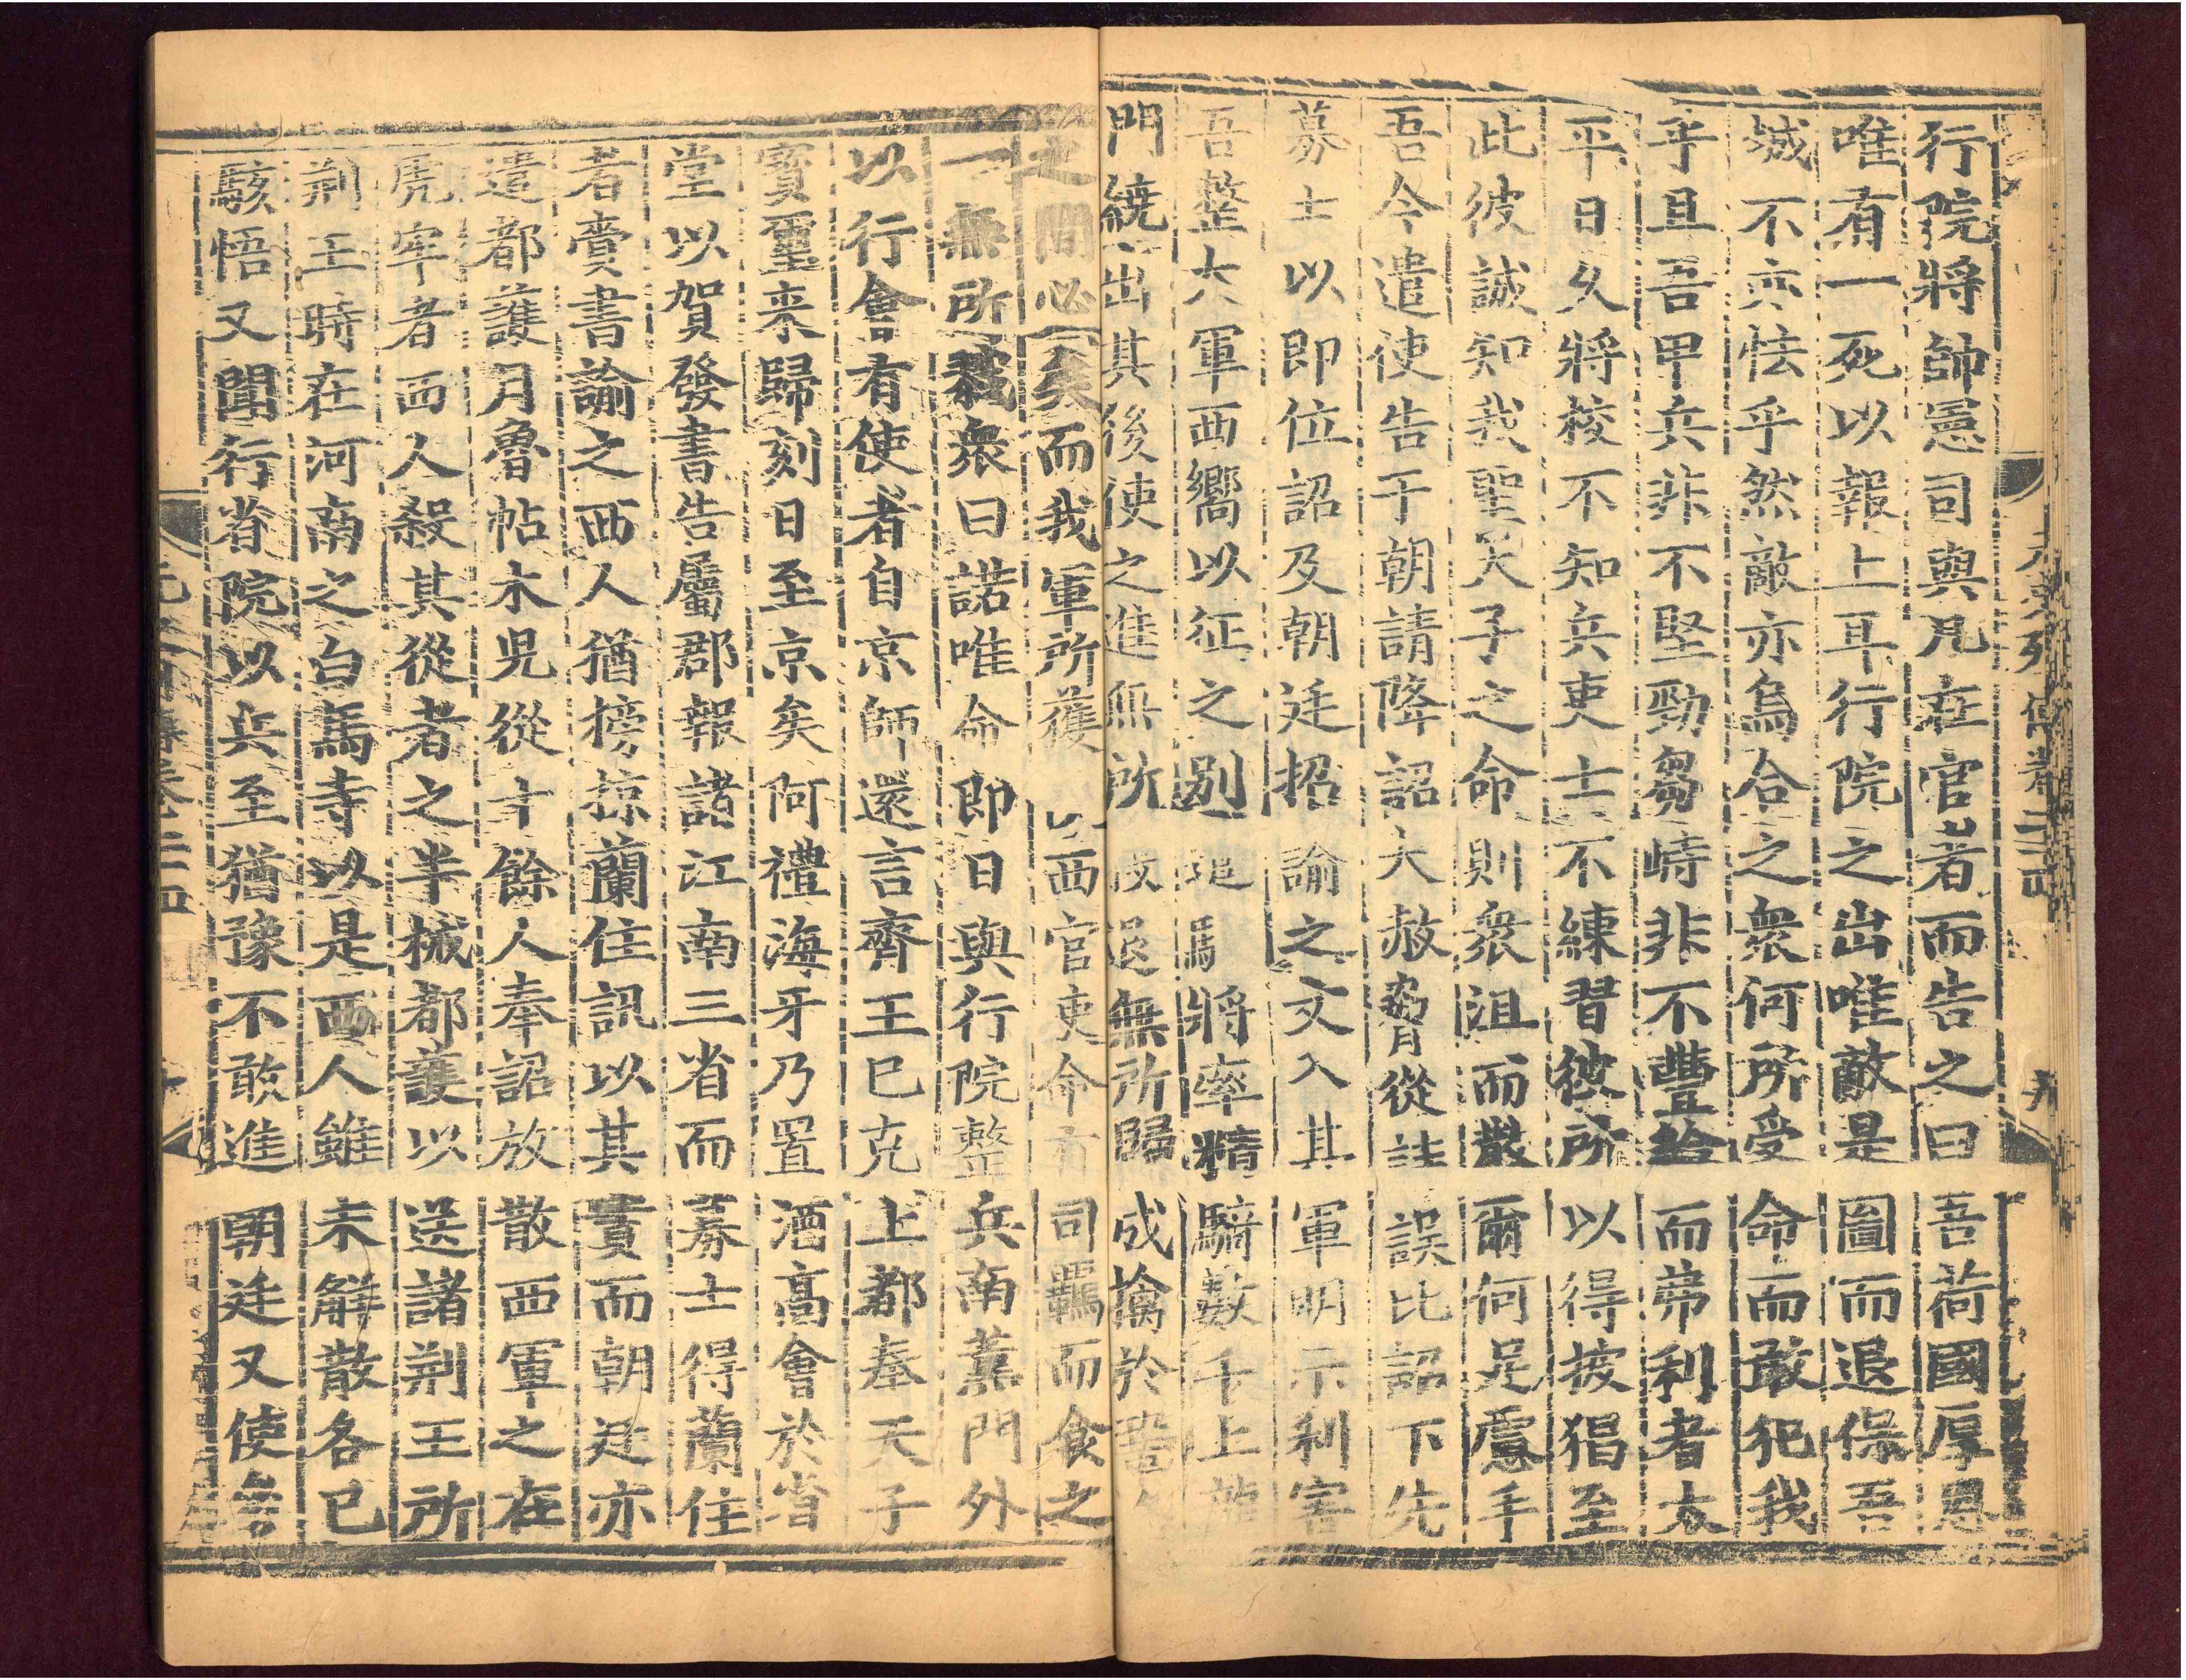 行院將帥憲司與凡在官者而告之曰吾荷國厚恩
唯有一死以報上耳行院之出唯敵是圖而退保吾
城不亦怯乎然敵亦烏合之衆何所受命而敢犯我
乎且吾甲兵非不堅勁芻峙非不豐給而弗利者太
平日久將校不知兵吏士不練習彼所以得披猖至
此彼誠知我聖天子之命則衆沮而散爾何足慮手
吾今遣使告于朝請降詔大赦脅從詿誤比詔下先
募士以即位詔及朝廷招諭之文入其軍明示利害
吾整大軍西嚮以征之別 將率精騎數千上
門繞出其後使之進無所 退無所歸成擒於
之間必矣而我軍所獲 西官吏命有司羈而食之
一無所 衆曰諾唯命即日與行院整兵南薰門外
以行會有使者自京師還言齊王已克上都奉天子
寶璽來歸刻日至京矣阿禮海牙乃置酒高會於省
堂以賀發書告屬郡報諸江南三省而募士得蘭住
者賫書諭之西人猶搒掠蘭住訊以其實而朝廷亦
遣都護月魯帖木兒從十餘人奉詔放散西軍之在
虎牢者西人殺其從者之半械都護以送諸荆王所
荆王時在河南之白馬寺以是西人雖未解散各已
駭悟又聞行省院以兵至猶豫不敢進朝廷又使參